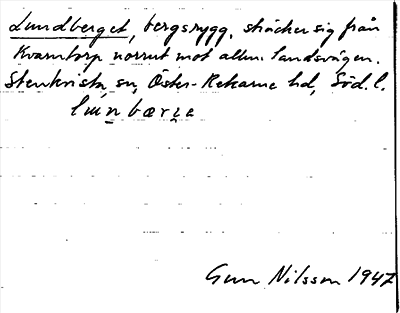 Lundberget, bergsrygg, sträcker sig från
Kvarntorp norrut mot allm. landsvägen.
Stenkvista sn, Öster-Rekarne hd, Söd. l.
Gun Nilsson 1947